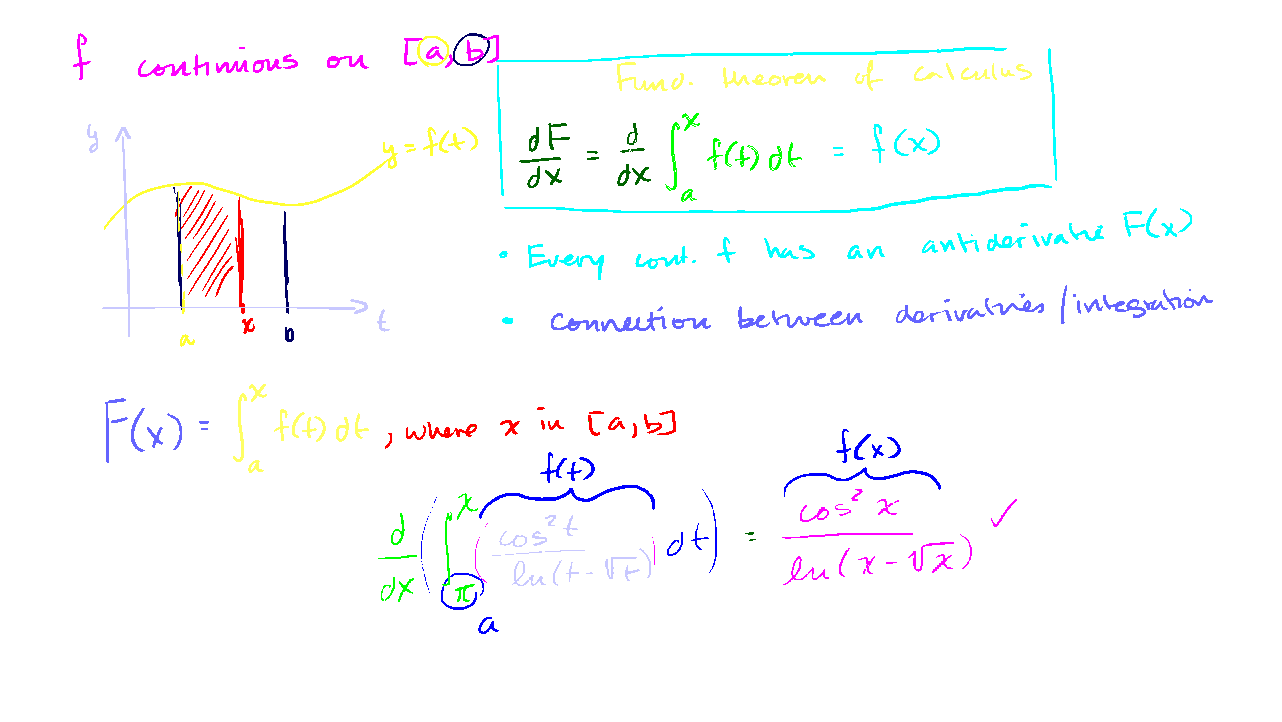 f continuous on [a, b]
Fund. theorem of calculus
dF/dx = d/dx ∫_a^x f(t) dt = f(x)
y
y = f(t)
a x b t
• Every cont. f has an antiderivative F(x)
• connection between derivatives/integration
F(x) = ∫_a^x f(t) dt, where x in [a, b]
f(t) f(x)
d/dx (∫_π^x (cos² t / ln(t - √t)) dt) = cos² x / ln(x - √x) ✓
a